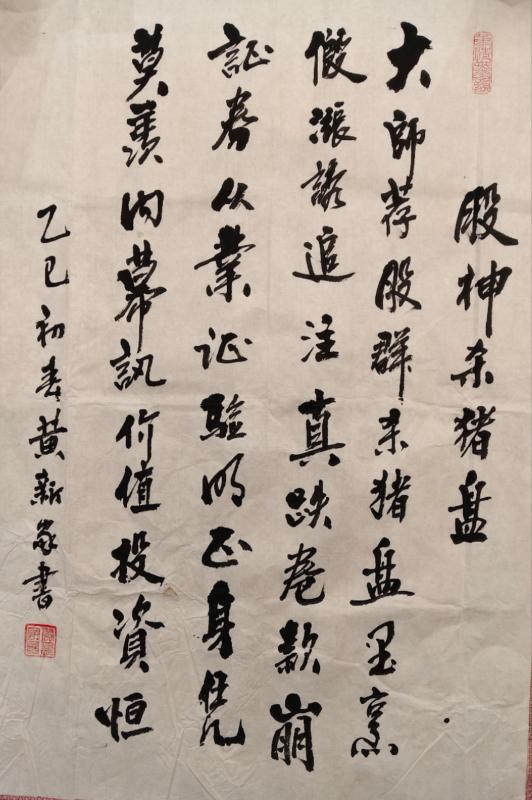 股神杀猪盘
大師荐股群杀猪盘里烹
假漲誘追注真跌卷款崩
証券从業证驗明正身任凭
莫羨内幕訊价值投資恒
乙巳初春黄新 書